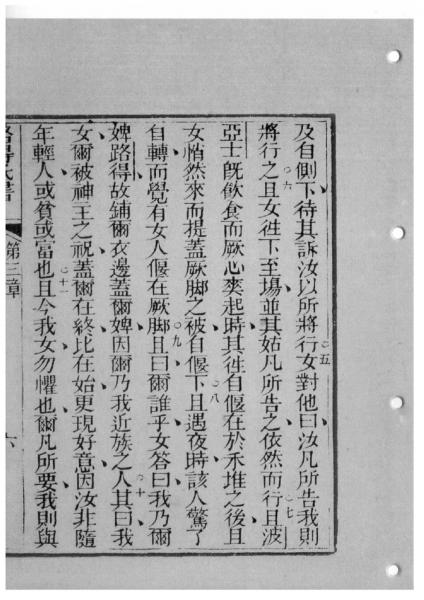 及自側下待其訴汝以所將行女對他曰汝凡所告我則
○五
將行之且女徃下至場並其姑凡所告之依然而行且波
○六
○七
亞士旣飲食而厥心爽起時其徃自偃在於禾堆之後且
女悄然來而提蓋厥脚之被自偃下且遇夜時該人驚了
○八
自轉而覺有女人偃在厥脚且曰爾誰乎女答曰我乃爾
○九
婢路得故鋪爾衣邊蓋爾婢因爾乃我近族之人其曰我
○十
女爾被神王之祝蓋爾在終比在始更現好意因汝非隨
年輕人或貧或富也且今我女勿懼也爾凡所要我則與
○十一
第三章
六